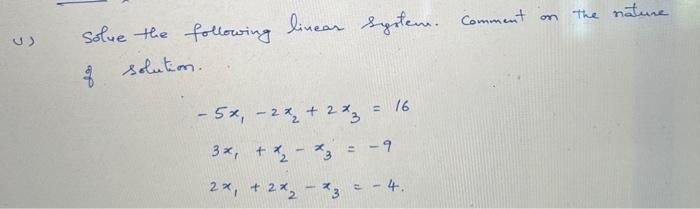 v) Solve the following linear system. Comment on the nature
of solution.
-5x₁ - 2x₂ + 2x₃ = 16
3x₁ + x₂ - x₃ = -9
2x₁ + 2x₂ - x₃ = -4.